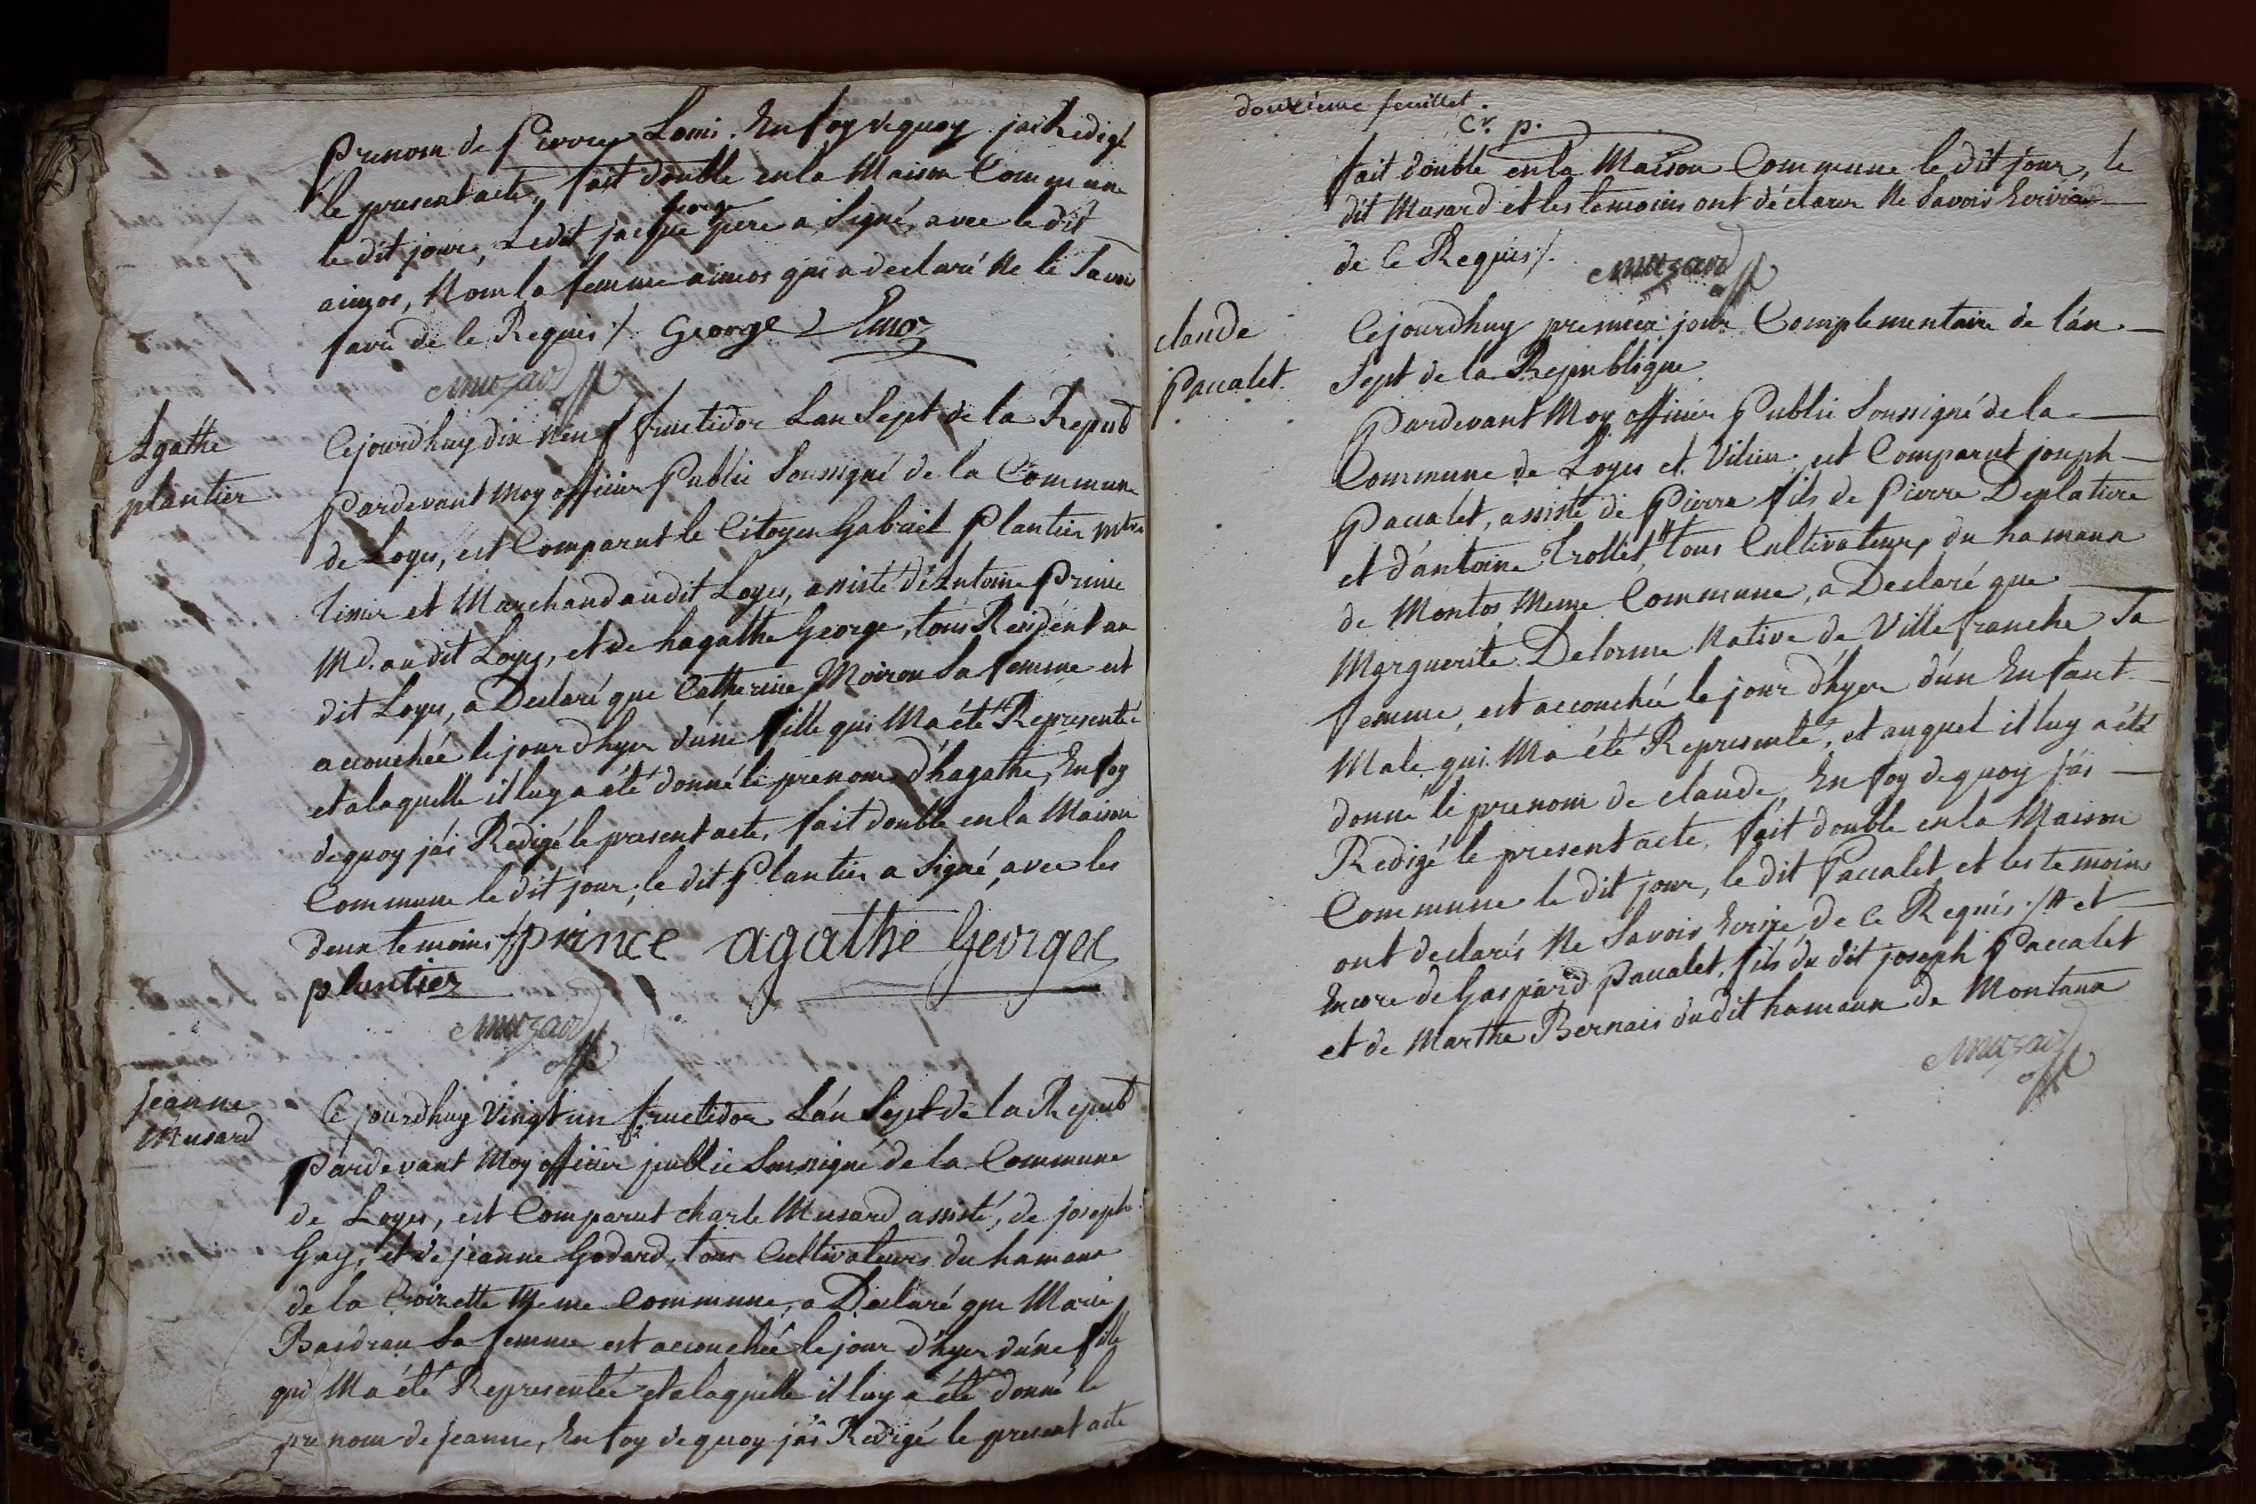 prenom de Pierre Louis. En foy dequoy jai Redigé
le present acte, fait double en la Maison Commune
le dit jour, Ledit jacque george pere a Signé, avec le dit
aimos, Nom la femme aimos qui a declaré Ne le Savoir
faire de le Requis /. George Emoz
Muzard off
Agathe
plantier
Cejourdhuy dix Neuf fructidor Lan Sept de la Repub
Pardevant Moy officier Public Soussigné de la Commune
de Loyes, est Comparut le Citoyen Gabriel Plantier Mtre
Tissier et Marchand audit Loyes, assisté d'Antoine Prince
Md. au dit Loyes, et de hagathe George, tous Residént au
dit Loyes, a Declaré que Catherine Moiron Sa femme est
accouchée le jour d'hyer d'une fille qui Ma été Representée
et a laquelle il luy a été donné le prenom d'hagathe, En foy
dequoy j'ai Redigé le present acte, fait double en la Maison
Commune le dit jour, le dit Plantier a Signé, avec les
deux temoins /. prince agathe George
plantier
Muzard off
jeanne
Musard
Cejourdhuy Vingt un fructidor L'an Sept de la Repub
Pardevant Moy officier public Soussigné de la Commune
de Loyes, est Comparut charle Musard assisté, de joseph
Gay, et de jeanne Godard, tous Cultivateurs du hamaux
de la Croizette Meme Commune, a Declaré que Marie
Baudrau Sa femme est accouchée le jour d'hyer d'une fille
qui Ma été Representée et a laquelle il luy a été donné le
prenom de jeanne, En foy dequoy j'ai Redigé le present acte
douzième feuillet.
C. p.
fait double en la Maison Commune le dit jour, le
dit Musard et les temoins ont déclarer Ne Savoir Ecrire
de Ce Requis /.
Muzard off
claude
Paccalet
Cejourdhuy premier jour Complementaire de l'an
Sept de la Republique
Pardevant Moy officier Public Soussigné de la
Commune de Loyes et Villieu, est Comparut joseph
Paccalet, assisté de Pierre fils de Pierre Deplatiere
et d'antoine Trollet, # tous Cultivateurs du hamaux
de Montos Meme Commune, a Declaré que
Marguerite Delorme Native de Ville franche Sa
femme, est accouchée le jour d'hyer d'un Enfant
Male qui Ma été Representé, et auquel il luy a été
donné le prenom de claude, En foy dequoy j'ai
Redigé le present acte, fait double en la Maison
Commune le dit jour, le dit Paccalet et les temoins
ont declarés Ne Savoir Ecrire de Ce Requis ./# et
Encore de Gaspard Paccalet, fils du dit joseph Paccalet
et de Marthe Bernais du dit hamaux de Montaux
Muzard off